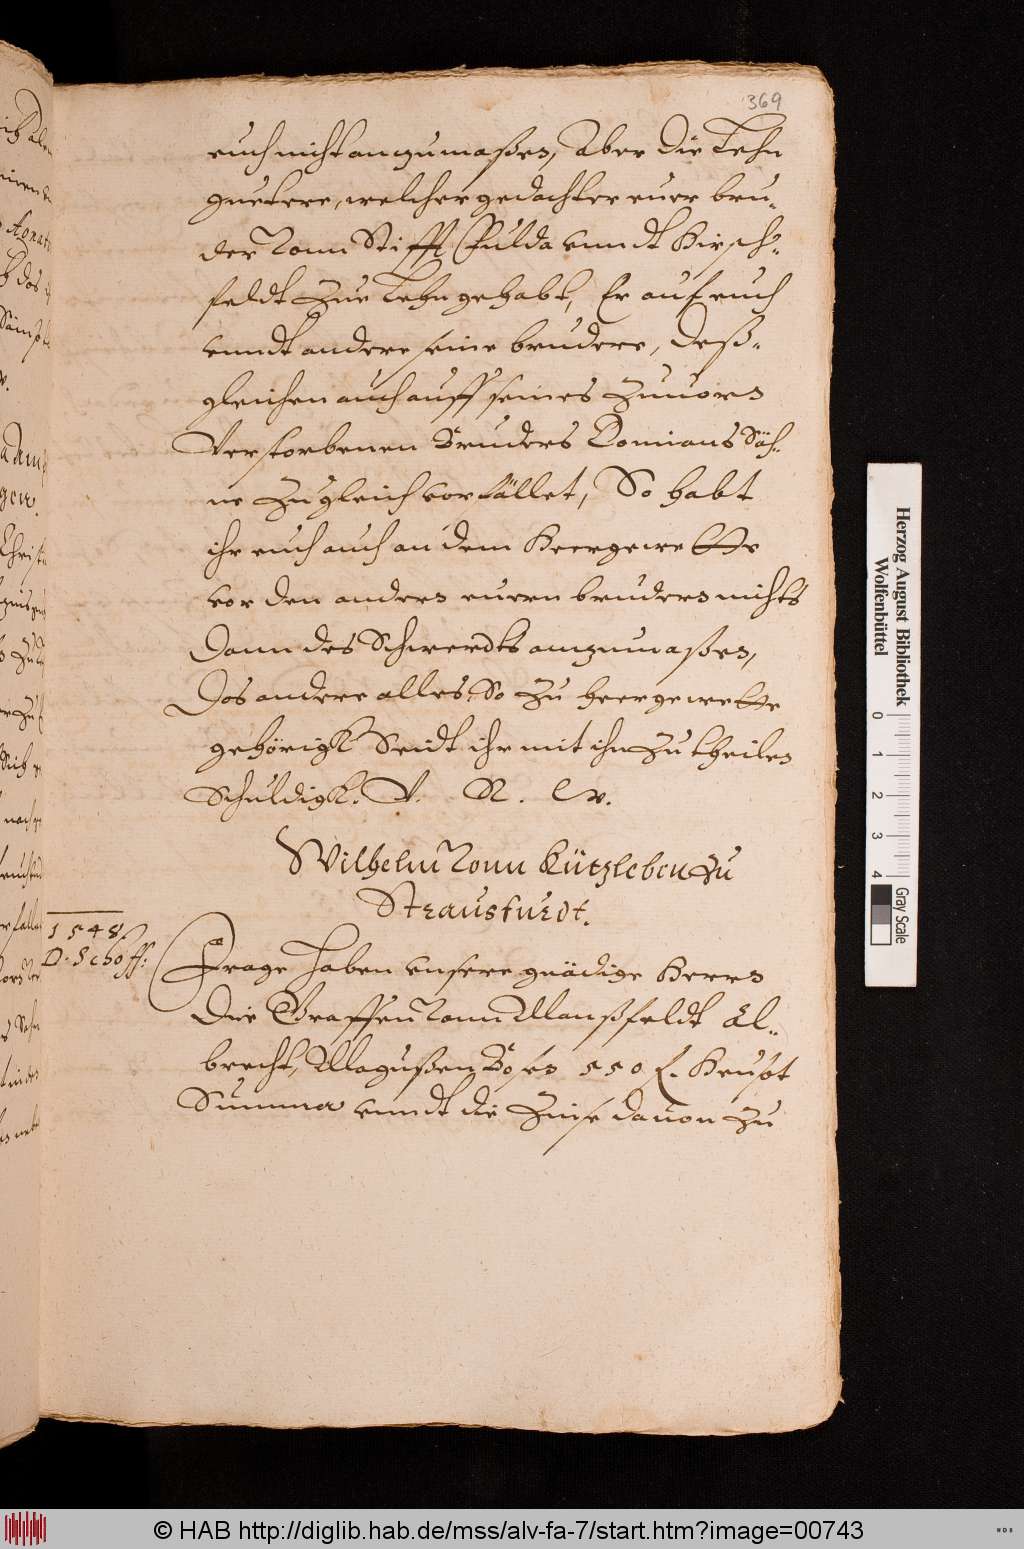 369
euch nicht anzumaßen, Aber die Lehn
guetere, welcher gedachter euer bru„
der vonn Stifft Fulda unndt Hirsch„
feldt zue Lehn gehabt, Er auf euch
unndt andere seine brudere, deß„
gleichen auch auff seines zuuorn
Verstorbenen Bruders Domians Söh„
ne zugleich vorfället, So habt
ihr euch auch an dem Heergewette
vor den andern euern brudern nichts
Dann des Schwerdts anzumaßen,
Das andere alles, So zu heergewette
gehörigk Seidt ihr mit ihn zu theilen
Schuldigk. V. R. W.
Wilhelm vonn Kützleben zu
Strausfurdt.
1548.
D. Schoff:
Frage haben unsere gnädige Herrn
die Graffen vonn Manßfeldt Al„
brecht, Magußen Bosen 550 f. Heupt
Summa unndt die Zinse dauon zu
Herzog August Bibliothek
Wolfenbüttel
0 1 2 3 4
Gray Scale
© HAB http://diglib.hab.de/mss/alv-fa-7/start.htm?image=00743